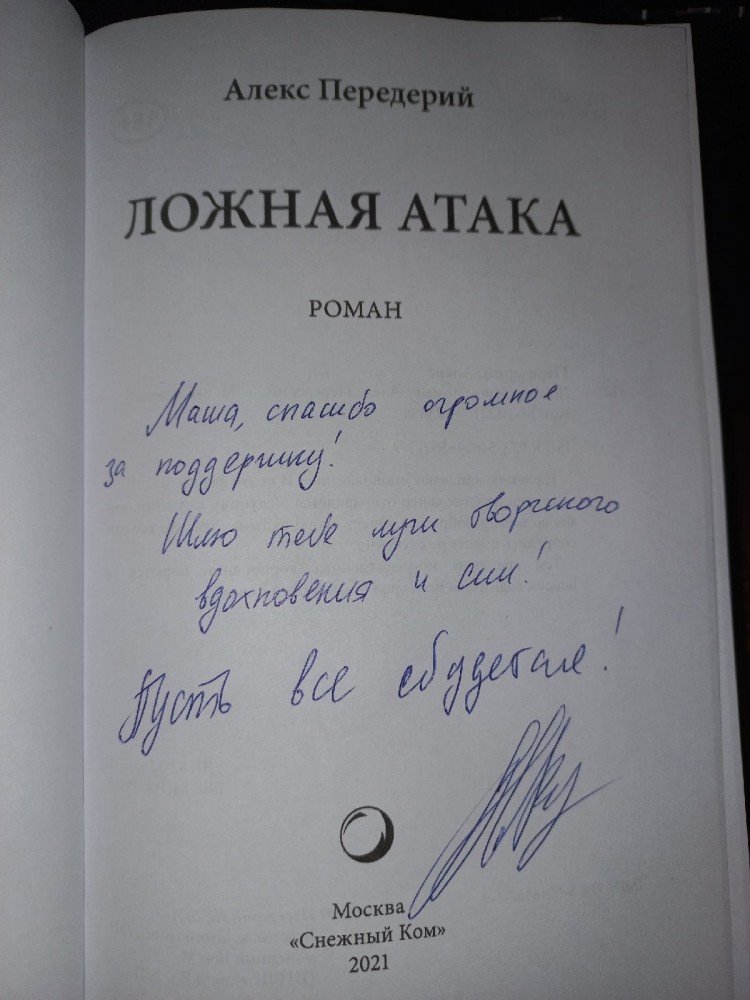 Алекс Передерий
ЛОЖНАЯ АТАКА
РОМАН
Маша, спасибо огромное
за поддержку!
Шлю тебе лучи творческого
вдохновения и сил!
Пусть все сбудется!
Москва
«Снежный Ком»
2021